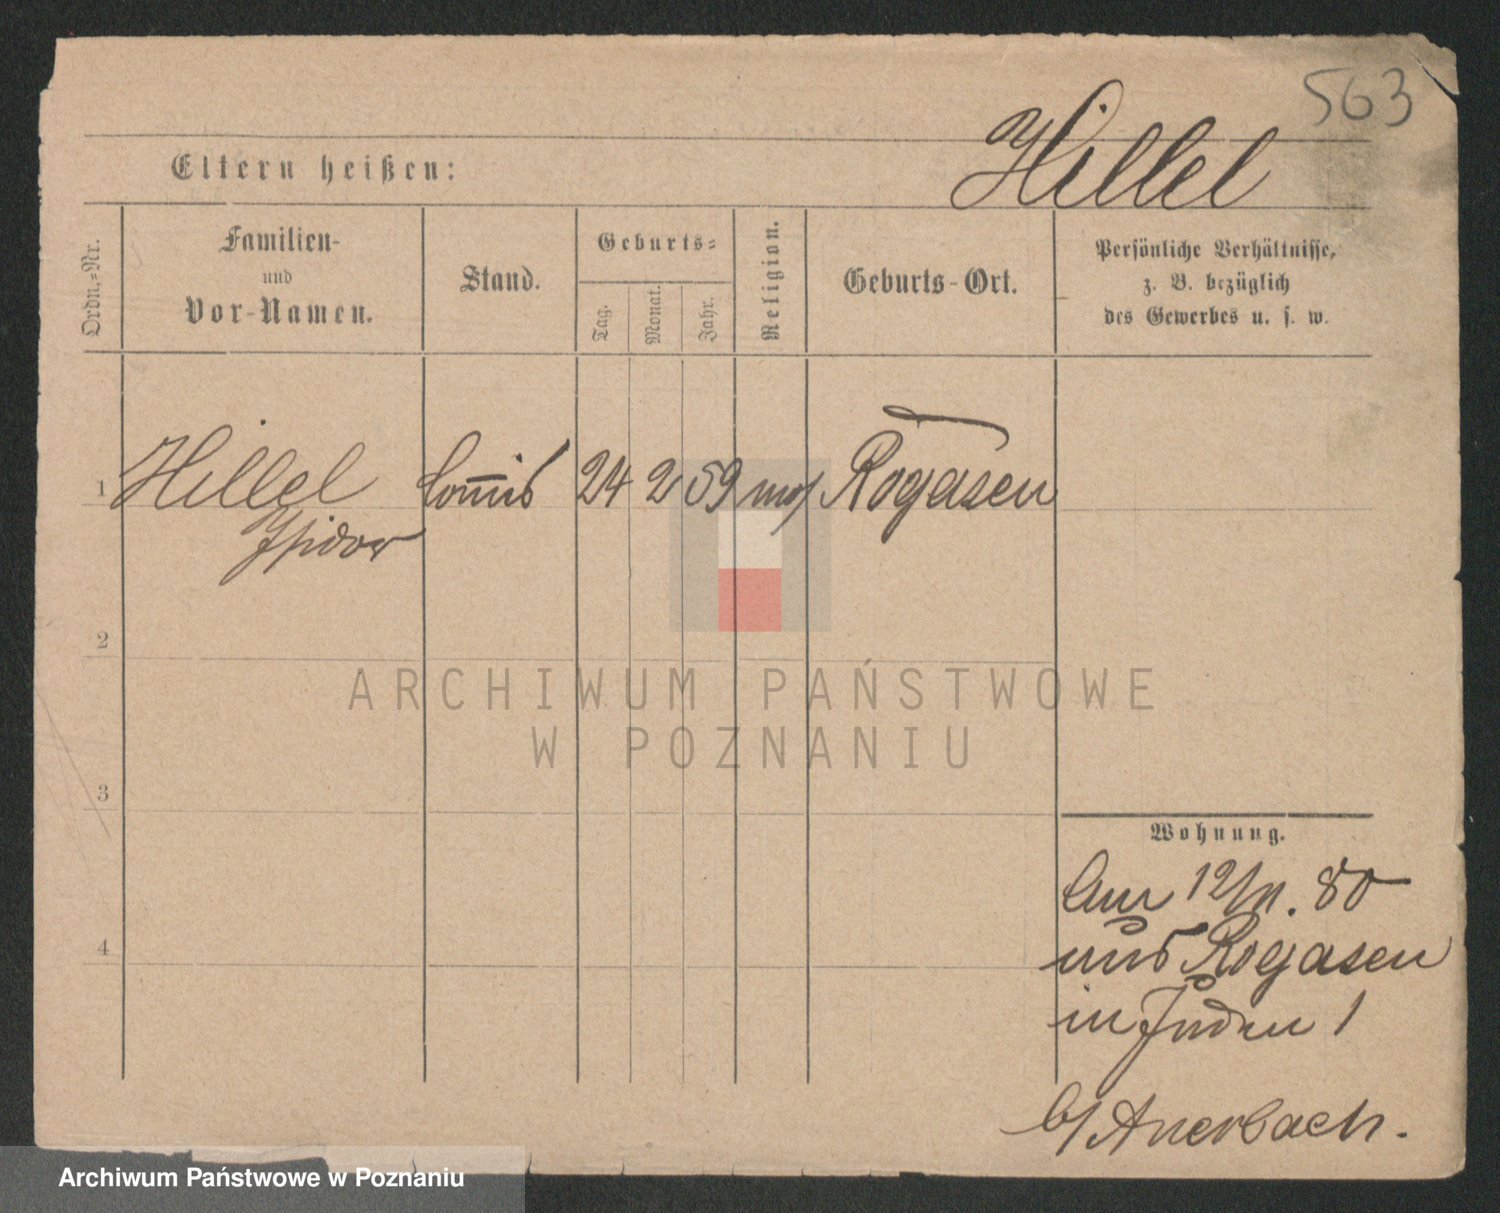 563
Hillel
Eltern heißen:
Ordn.-Nr.
Familien-
und
Vor-Namen.
Stand.
Geburts-
Tag.
Monat.
Jahr.
Religion.
Geburts-Ort.
Persönliche Verhältnisse,
z. B. bezüglich
des Gewerbes u. s. w.
1 Hillel Commis 24 2 59 mos Rogasen
Isidor
2
ARCHIWUM PAŃSTWOWE
W POZNANIU
3
Wohnung.
Am 12/11. 80
aus Rogasen
in Juden 1
4
b/ Auerbach.
Archiwum Państwowe w Poznaniu